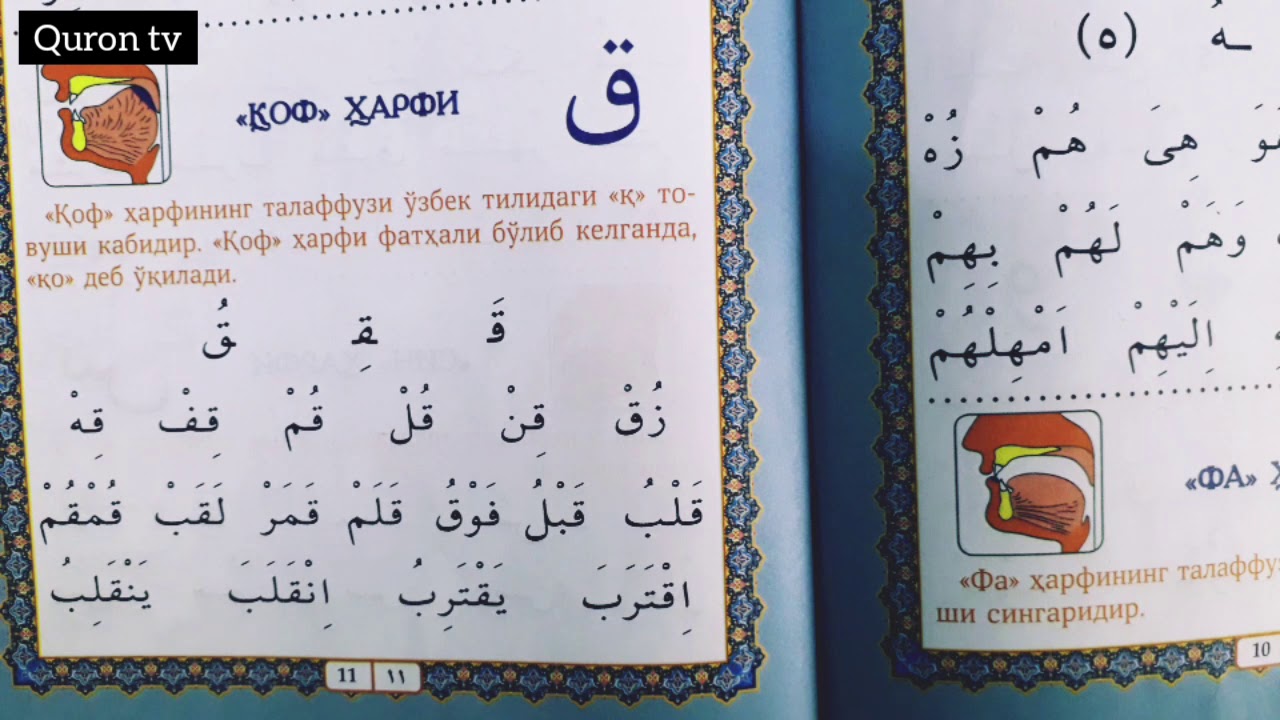 Quron tv
ق
«ҚОФ» ҲАРФИ
«Қоф» ҳарфининг талаффузи ўзбек тилидаги «қ» то-
вуши кабидир. «Қоф» ҳарфи фатҳали бўлиб келганда,
«қо» деб ўқилади.
قَـ ـقِـ ـقُ
زُقْ قِنْ قُلْ قُمْ قِفْ قِهْ
قَلْبُ قَبْلُ فَوْقُ قَلَمْ قَمَرْ لَقَبْ قُمْقُمْ
اِقْتَرَبَ يَقْتَرِبُ اِنْقَلَبَ يَنْقَلِبُ
11 ١١
ـهُ (٥)
هِىَ هُمْ زُهْ
وَهَمْ لَهُمْ بِهِمْ
اِلَيْهِمْ اَمْهِلْهُمْ
«ФА»
«Фа» ҳарфининг
ши сингаридир.
10